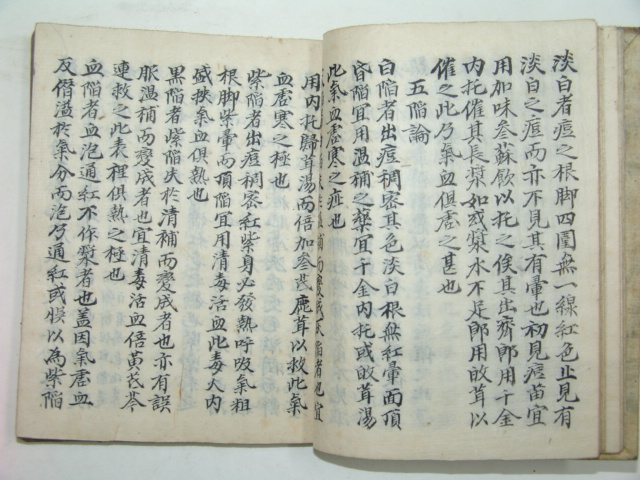 淡白者痘之根脚四圍無一線紅色止見有
淡白之痘而亦不見其有暈也初見痘苗宜
用加味參蘇飮以托之俟其出齊卽用千金
内托催其長漿如或漿水不足卽用茸以
催之此乃氣血俱虛之甚也
五陷論
白陷者出痘稠密其色淡白根無紅暈而頂
昏陷宜用温補之藥宜千金内托或茸湯
此氣血虛寒之症也
用内托歸茸湯而倍加參芪鹿茸以救此氣
血虛寒之極也
紫陷者出痘稠密紅紫身必發熱呼吸氣粗
根脚紫暈而頂陷宜用清毒活血此毒火内
盛扶氣血俱熱也
黑陷者紫陷失於清補而變成者也亦有誤
服温補而變成者也宜清毒活血倍黃芪芩
連救之此表裡俱熱之極也
血陷者血泡通紅不作漿者也盖因氣虛血
反僭溢於氣分而泡乃通紅或誤以為紫陷